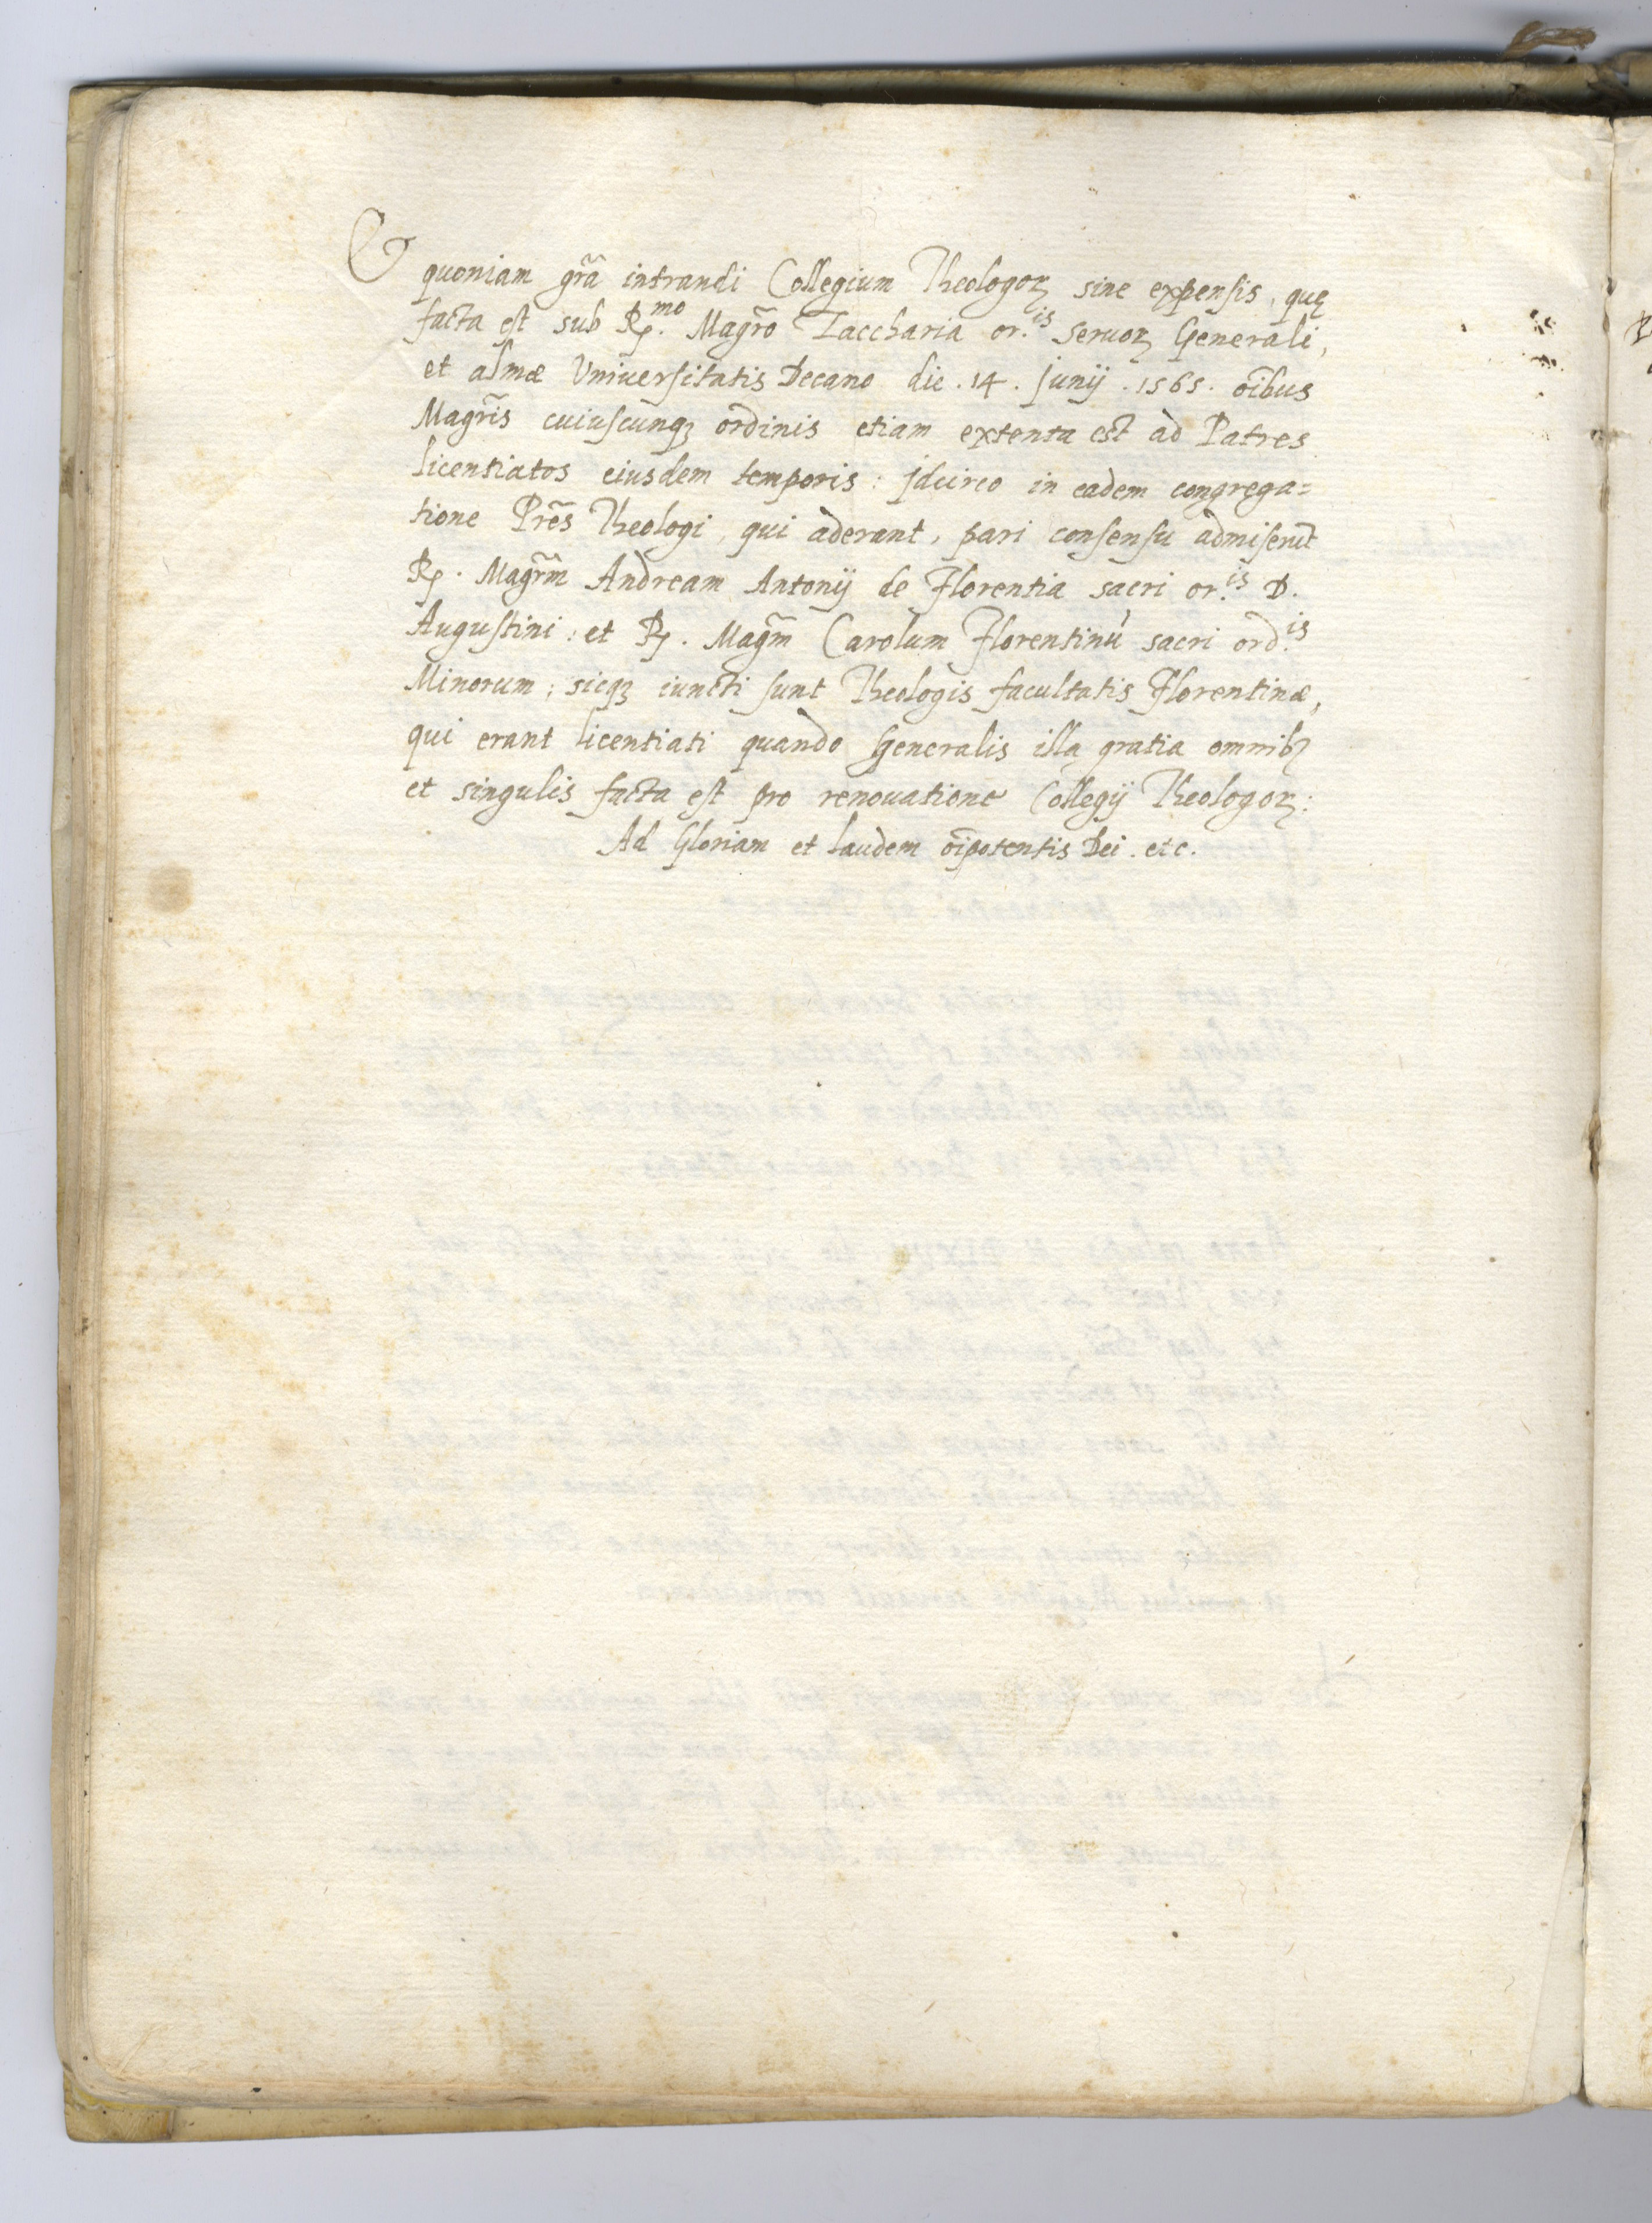 Et quoniam gr̃a intrandi Collegium Theologoꝝ sine expensis, quę
facta est sub R.mo Magr̃o Zaccharia or.is Seruoꝝ Generali,
et almæ Vniuersitatis Decano die .14. Junij .1565. oĩbus
Magr̃is cuiuscunqꝫ ordinis etiam extenta est ad Patres
licentiatos eiusdem temporis: Jdcirco in eadem congrega=
tione Prẽs Theologi, qui aderant, pari consensu admiserũt
R. Magr̃m Andream Antonij de Florentia sacri or.is D.
Augustini: et R. Magm̃ Carolum Florentinũ sacri ord.is
Minorum; sicqꝫ iuncti sunt Theologis facultatis Florentinæ,
qui erant licentiati quando Generalis illa gratia omnibꝫ
et singulis facta est pro renouatione Collegij Theologoꝝ:
Ad Gloriam et laudem oĩpotentis Dei. etc.